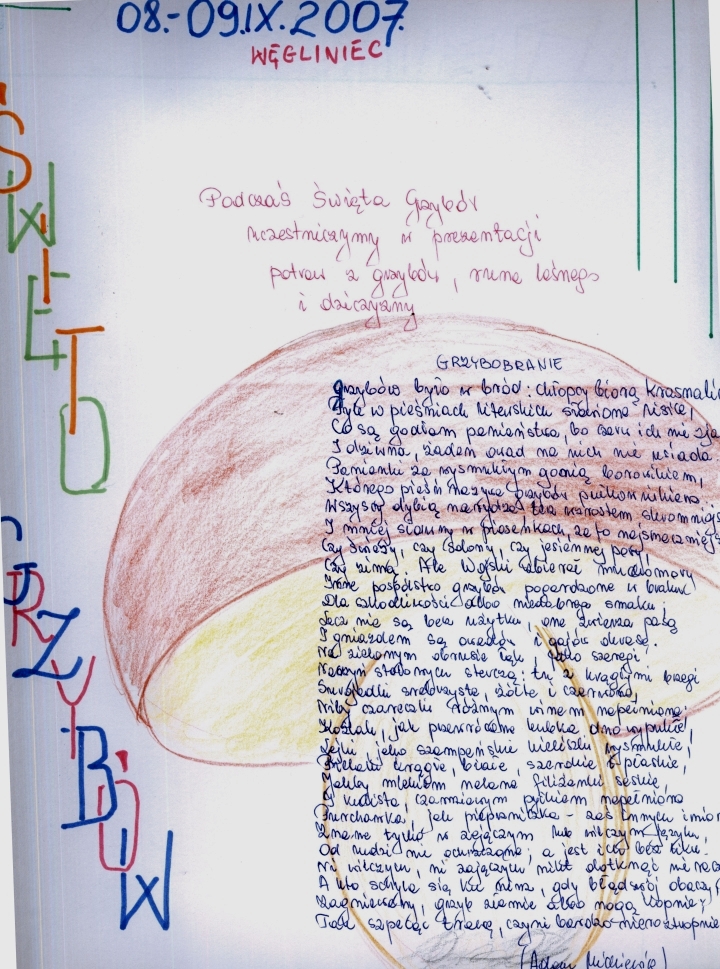 08.-09.IX.2007.
WĘGLINIEC
ŚWIĘTO
GRZYBÓW
Podczas Święta Grzybów
uczestniczymy w prezentacji
potraw z grzybów, runa leśnego
i dziczyzny
GRZYBOBRANIE
Grzybów było w bród: chłopcy biorą krasnalic
Tyle w pieśniach litewskich sławione lisice,
Co są godłem panieństwa, bo czerw ich nie zja
I dziwna, żaden owad na nich nie usiada
Panienki za wysmukłym gonią borowikiem,
Którego pieśń nazywa grzybów pułkownikiem
Wszyscy dybią na rydza; ten wzrostem skromniejs
I mniej sławny w piosenkach, za to najsmaczniej
Czy świeży, czy solony, czy jesiennej pory,
Czy zimą. Ale Wojski zbierał muchomory
Inne pospólstwo grzybów pogardzone w braku
Dla szkodliwości albo niedobrego smaku,
Lecz nie są bez użytku, one zwierza pasą
I gniazdem są owadów i gajów okrasą.
Na zielonym obrusie łąk, jako szeregi
Naczyń stołowych sterczą: tu z krągłymi brzegi
Surojadki srebrzyste, żółte i czerwone,
Niby czareczki różnym winem napełnione;
Koźlak, jak przewrócone kubka dno wypukłe,
Lejki, jako szampańskie kieliszki wysmukłe,
Bielaki krągłe, białe, szerokie i płaskie,
Jakby mlekiem nalane filiżanki saskie,
I kulista, czarniawym pyłkiem napełniona
Purchawka, jak pieprzniczka - zaś innych imion
Znane tylko w zajęczym lub wilczym języku,
Od ludzi nie ochrzczone; a jest ich bez liku.
Ni wilczych, ni zajęczych nikt dotknąć nie racz
A kto schyla się ku nim, gdy błąd swój obaczy
Zagniewany, grzyb złamie albo nogą kopnie;
Tak szpecąc trawę, czyni bardzo nieroztropnie
(Adam Mickiewicz)